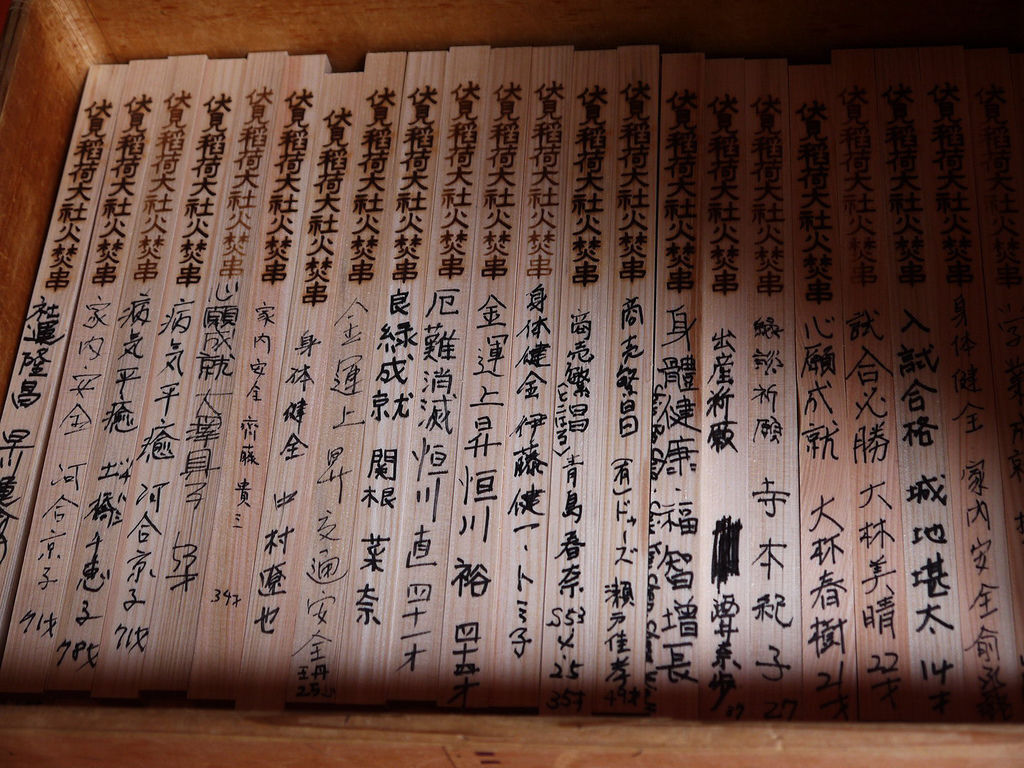 伏見稲荷大社火焚串 学業成就
伏見稲荷大社火焚串 身体健全 家内安全
伏見稲荷大社火焚串 入試合格 城地堪太 14才
伏見稲荷大社火焚串 試合必勝 大林美晴 22才
伏見稲荷大社火焚串 心願成就 大林春樹 21才
伏見稲荷大社火焚串 縁談祈願 寺本紀子 27
伏見稲荷大社火焚串 出産祈願 奈歩 37
伏見稲荷大社火焚串 身體健康・福智增長
伏見稲荷大社火焚串 商売繁昌 (有)ドゥーズ 瀬戸佳孝 49才
伏見稲荷大社火焚串 商売繁昌 青島春奈 S53 4.25 35才
伏見稲荷大社火焚串 身体健全 伊藤健一・トミ子
伏見稲荷大社火焚串 金運上昇 恒川裕 四十五才
伏見稲荷大社火焚串 厄難消滅 恒川直 四十一才
伏見稲荷大社火焚串 良縁成就 関根菜奈
伏見稲荷大社火焚串 金運上昇 交通安全
伏見稲荷大社火焚串 身体健全 中村遼也
伏見稲荷大社火焚串 家内安全 齊藤貴三 39才
伏見稲荷大社火焚串 心願成就 53才
伏見稲荷大社火焚串 病気平癒 河合京子 71才
伏見稲荷大社火焚串 病気平癒 土橋千恵子 78才
伏見稲荷大社火焚串 家内安全 河合京子 71才
伏見稲荷大社火焚串 社運隆昌